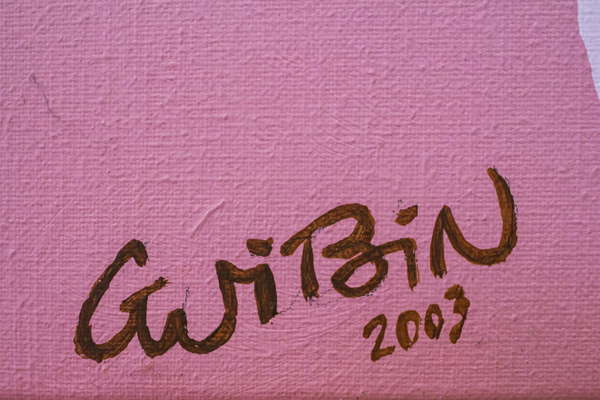 GuiBiN
2003